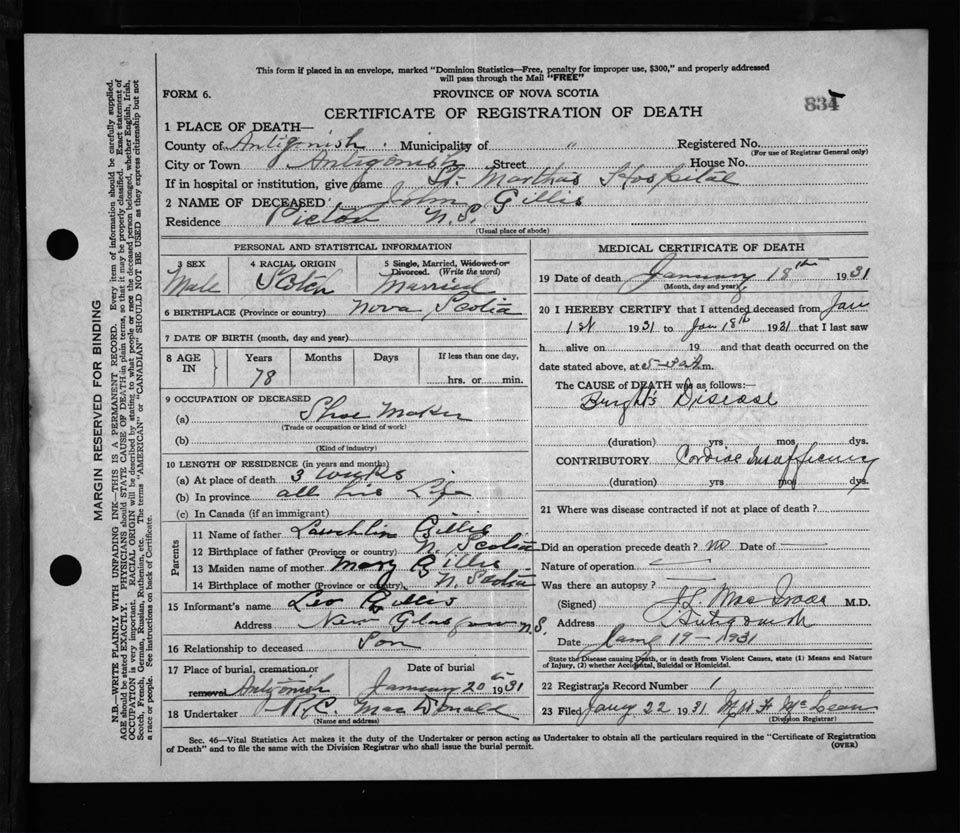 This form if placed in an envelope, marked "Dominion Statistics—Free, penalty for improper use, $300," and properly addressed
will pass through the Mail "FREE"
FORM 6.
PROVINCE OF NOVA SCOTIA
834
CERTIFICATE OF REGISTRATION OF DEATH
1 PLACE OF DEATH—
County of Antigonish Municipality of " Registered No.
(For use of Registrar General only)
City or Town Antigonish Street House No.
If in hospital or institution, give name St. Marthas Hospital
2 NAME OF DECEASED John Gillis
Residence Pictou N.S.
(Usual place of abode)
PERSONAL AND STATISTICAL INFORMATION
3 SEX 4 RACIAL ORIGIN 5 Single, Married, Widowed or
Divorced. (Write the word)
Male Scotch Married
6 BIRTHPLACE (Province or country) Nova Scotia
7 DATE OF BIRTH (month, day and year)
8 AGE IN Years Months Days If less than one day,
78 hrs. or min.
9 OCCUPATION OF DECEASED
(a) Shoe Maker
(Trade or occupation or kind of work)
(b)
(Kind of industry)
10 LENGTH OF RESIDENCE (in years and months)
(a) At place of death 3 weeks
(b) In province all his Life
(c) In Canada (if an immigrant)
Parents
11 Name of father Lauchlin Gillis
12 Birthplace of father (Province or country) N. Scotia
13 Maiden name of mother Mary Gillis
14 Birthplace of mother (Province or country) N. Scotia
15 Informant's name Leo Gillis
Address New Glasgow N.S.
16 Relationship to deceased Son
17 Place of burial, cremation or Date of burial
removal Antigonish January 20th 1931
18 Undertaker MacDonald
(Name and address)
MEDICAL CERTIFICATE OF DEATH
19 Date of death January 18th 1931
(Month, day and year)
20 I HEREBY CERTIFY that I attended deceased from Jan
1st 1931 to Jan 18th 1931 that I last saw
h alive on 19 and that death occurred on the
date stated above, at m.
The CAUSE of DEATH was as follows:—
Bright's Disease
(duration) yrs mos dys.
CONTRIBUTORY Cardiac Insufficiency
(duration) yrs mos dys.
21 Where was disease contracted if not at place of death?
Did an operation precede death? no Date of
Nature of operation
Was there an autopsy?
(Signed) MacIsaac M.D.
Address Antigonish
Date Jany 19-1931
State the Disease causing Death, or in death from Violent Causes, state (1) Means and Nature
of Injury, (2) whether Accidental, Suicidal or Homicidal.
22 Registrar's Record Number 1
23 Filed Jany 22 1931 McLean
(Division Registrar)
Sec. 46—Vital Statistics Act makes it the duty of the Undertaker or person acting as Undertaker to obtain all the particulars required in the "Certificate of Registration
of Death" and to file the same with the Division Registrar who shall issue the burial permit. (OVER)
MARGIN RESERVED FOR BINDING
N.B.—WRITE PLAINLY WITH UNFADING INK—THIS IS A PERMANENT RECORD. Every item of information should be carefully supplied.
AGE should be stated EXACTLY. PHYSICIANS should STATE CAUSE OF DEATH in plain terms, so that it may be properly classified. Exact statement of
OCCUPATION is very important. RACIAL ORIGIN will be described by stating to what people or race the deceased person belonged, whether English, Irish,
Scotch, French, German, Russian, Ruthenian, etc. The terms "AMERICAN" or "CANADIAN" SHOULD NOT BE USED as they express citizenship but not
a race or people. See instructions on back of Certificate.